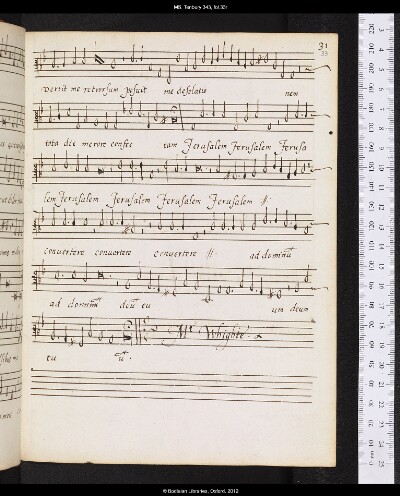 MS. Tenbury 343, fol.33r
31
33
vertit me retrorsum posuit me desolata nem
tota die merore confec tam Jerusalem Jerusalem Jerusa
lem Jerusalem Jerusalem Jerusalem Jerusalem
convertere convertere convertere ad dominū
ad dominū deū tu
um deum
tu ū.
Mr Whighte
© Bodleian Libraries, Oxford, 2012